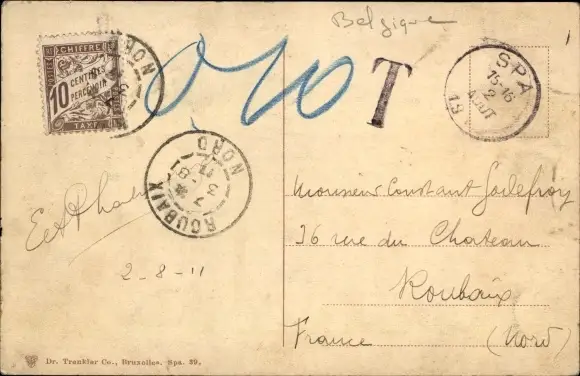 Belgique
CHIFFRE
10 CENTIMES
A PERCEVOIR
TAXE
NORD
T
SPA
15-16
2
AOUT
ROUBAIX
NORD
2-8-11
Monsieur Constant
36 rue du Chateau
Roubaix
France (Nord)
Dr. Trenkler Co., Bruxelles. Spa. 39.